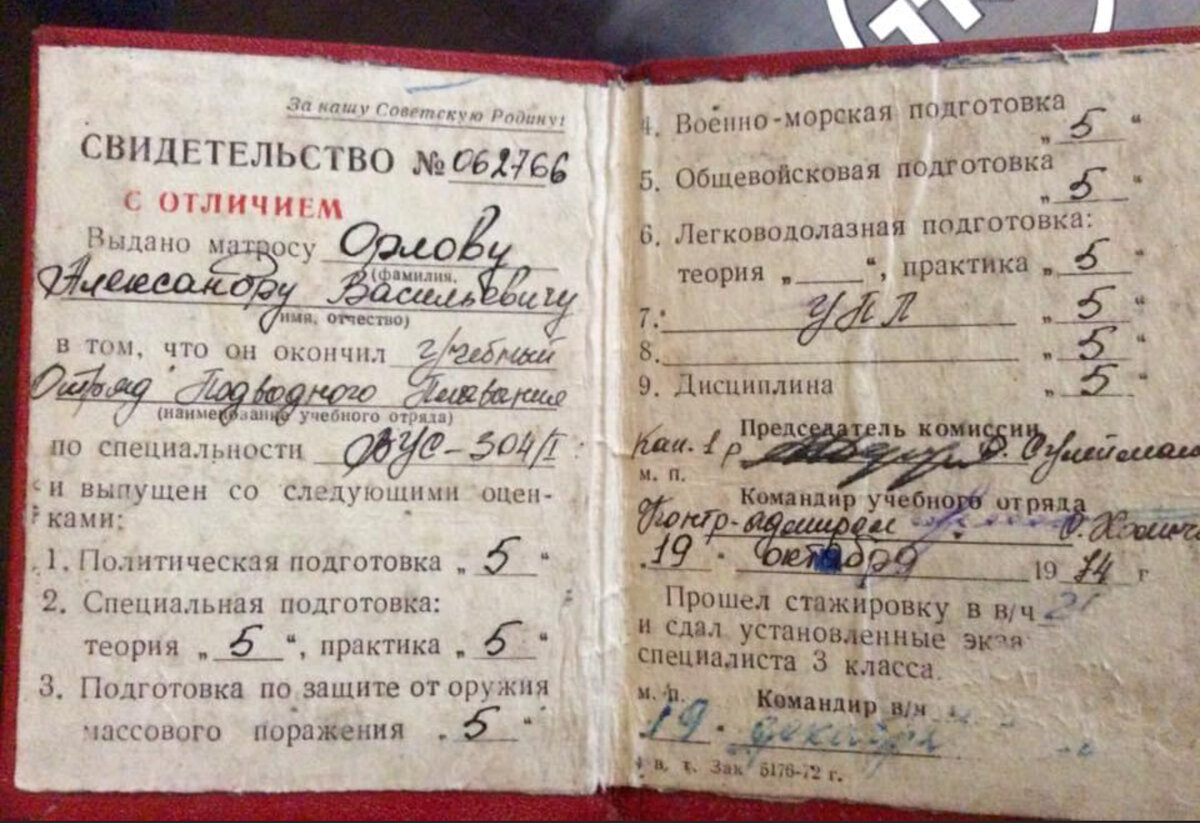 За нашу Советскую Родину!
СВИДЕТЕЛЬСТВО № 062766
С ОТЛИЧИЕМ
Выдано матросу Орлову
(фамилия,
Александру Васильевичу
имя, отчество)
в том, что он окончил Учебный
Отряд Подводного Плавания
(наименование учебного отряда)
по специальности ВУС-304/I
и выпущен со следующими оцен-
ками:
1. Политическая подготовка „ 5 “
2. Специальная подготовка:
теория „ 5 “, практика „ 5 “
3. Подготовка по защите от оружия
массового поражения „ 5 “
4. Военно-морская подготовка
„ 5 “
5. Общевойсковая подготовка
„ 5 “
6. Легководолазная подготовка:
теория „ “, практика „ 5 “
7. УПЛ „ 5 “
8. „ 5 “
9. Дисциплина „ 5 “
Председатель комиссии
Кап. 1 р
м. п.
Командир учебного отряда
Контр-адмирал
„ 19 “ октября 19 74 г
Прошел стажировку в в/ч
и сдал установленные экза
специалиста 3 класса.
м. п. Командир в/ч
19 декабря
в. т. Зак 5176-72 г.